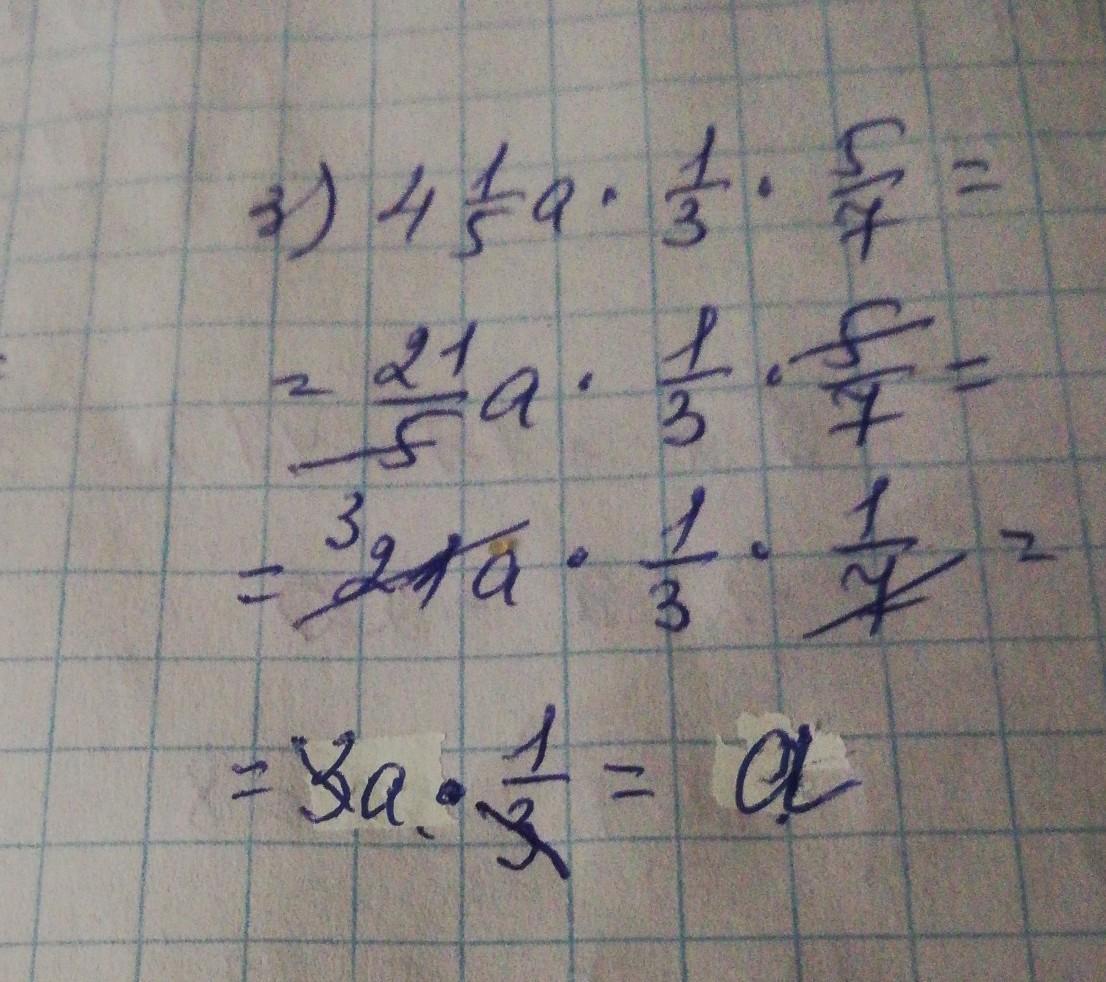 3) 4 1/5 a · 1/3 · 5/7 =
= 21/5 a · 1/3 · 5/7 =
3
= 21a · 1/3 · 1/7 =
= 3a · 1/3 = a